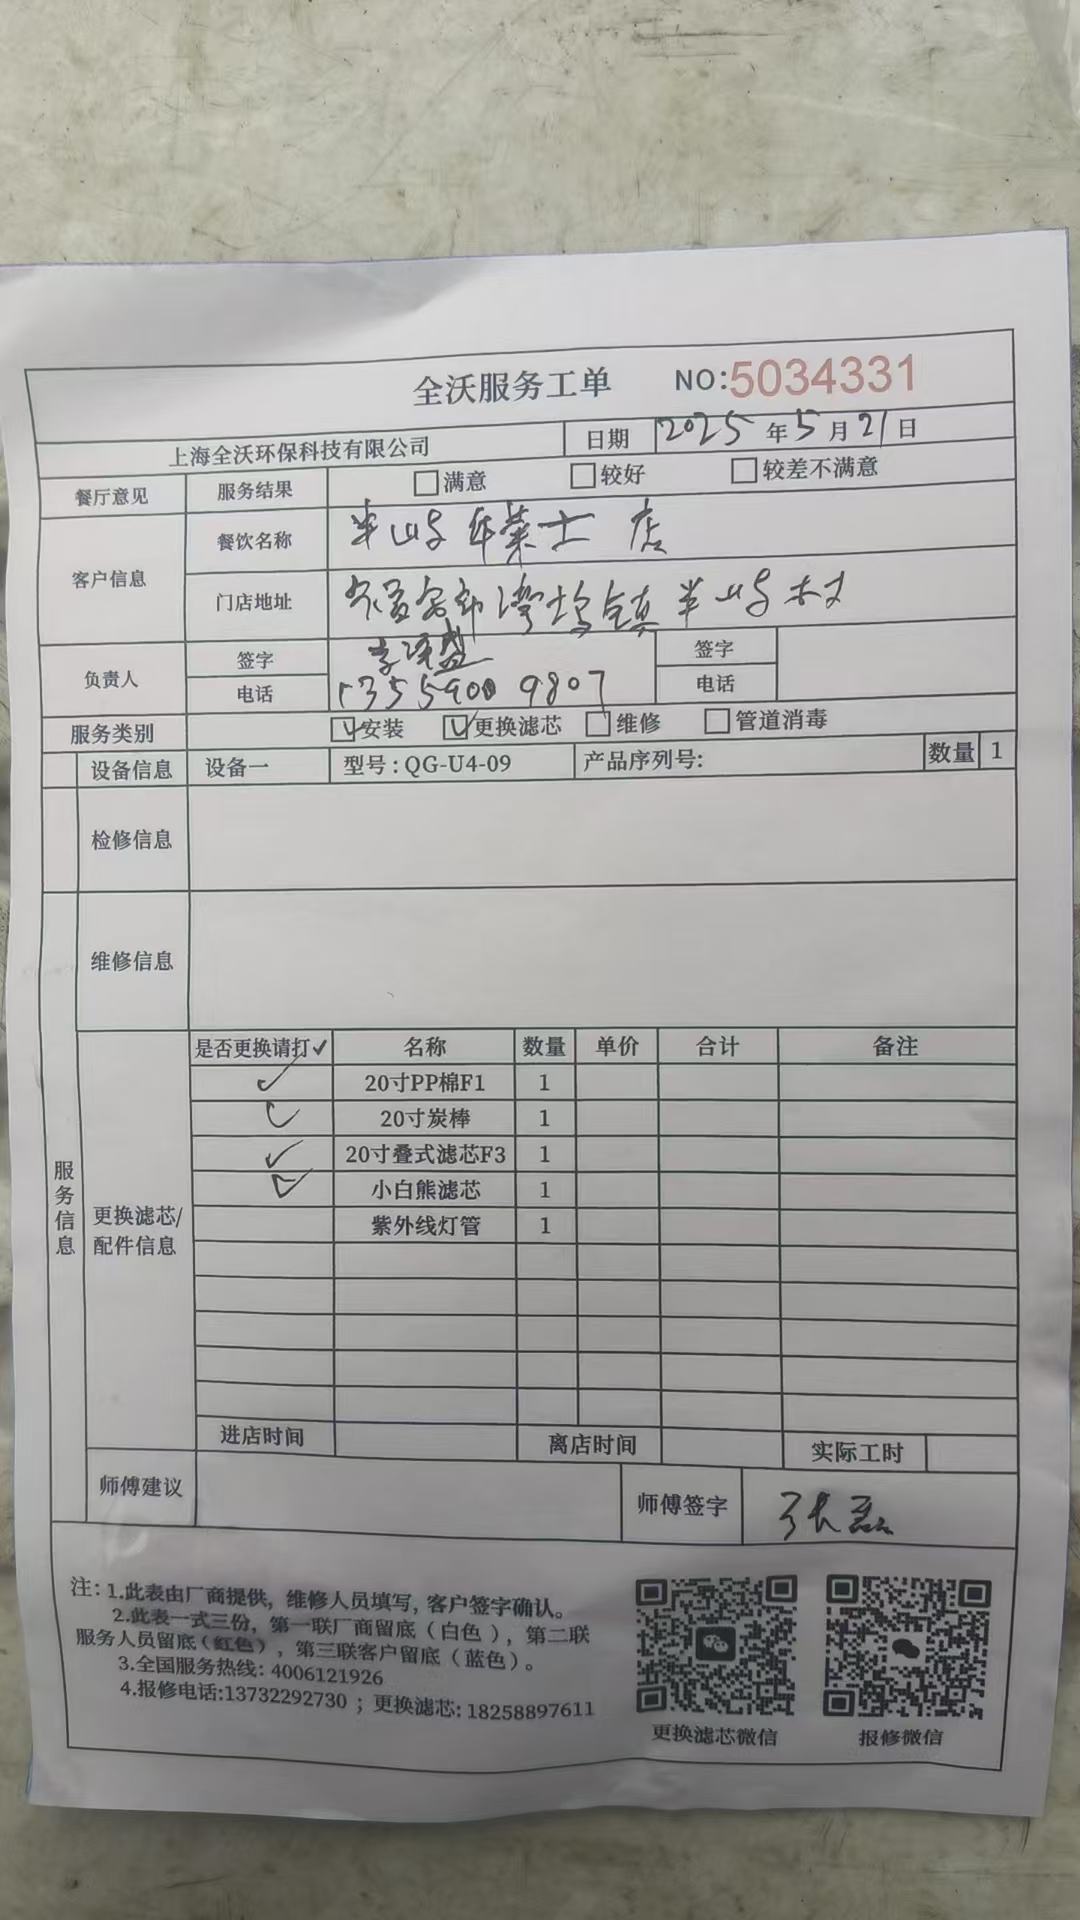 全沃服务工单 NO:5034331
上海全沃环保科技有限公司 日期 2025年5月21日
餐厅意见 服务结果 满意 较好 较差不满意
客户信息 餐饮名称 半屿华莱士 店
门店地址 湾坞镇半屿村
负责人 签字 签字
电话 13559009807 电话
服务类别 安装 更换滤芯 维修 管道消毒
设备信息 设备一 型号:QG-U4-09 产品序列号: 数量 1
检修信息
维修信息
服务信息
更换滤芯/
配件信息
是否更换请打✓ 名称 数量 单价 合计 备注
✓ 20寸PP棉F1 1
✓ 20寸炭棒 1
✓ 20寸叠式滤芯F3 1
✓ 小白熊滤芯 1
紫外线灯管 1
进店时间 离店时间 实际工时
师傅建议 师傅签字 张磊
注:1.此表由厂商提供,维修人员填写,客户签字确认。
2.此表一式三份,第一联厂商留底(白色),第二联
服务人员留底(红色),第三联客户留底(蓝色)。
3.全国服务热线:4006121926
4.报修电话:13732292730 ;更换滤芯:18258897611
更换滤芯微信 报修微信